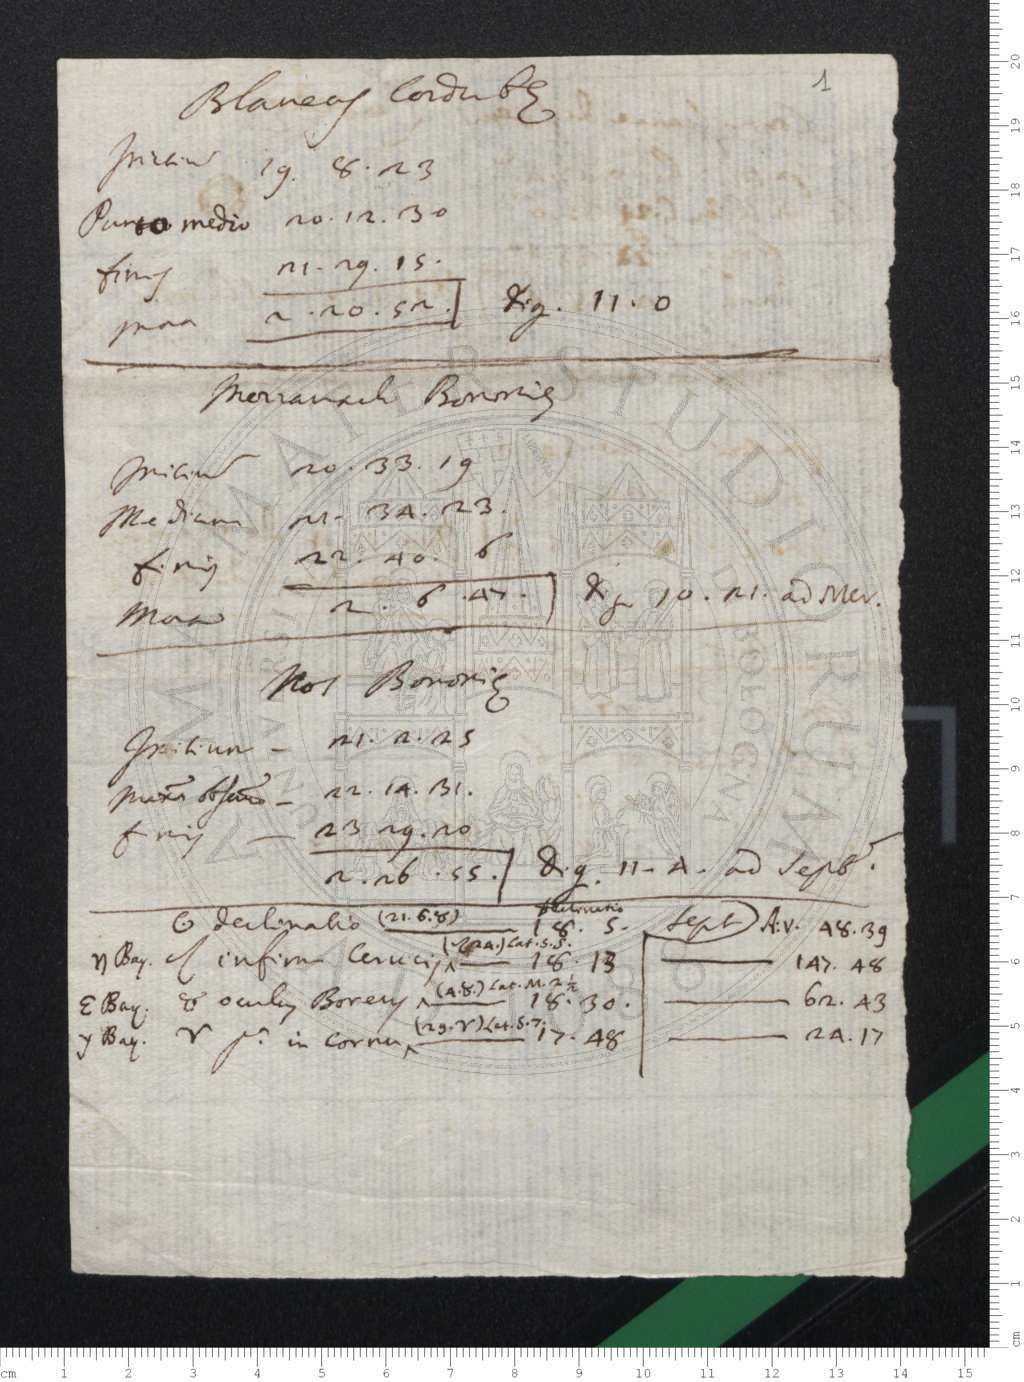 1
Blancus Cordubę
Initium 19. 8. 23
Puncto medio 20. 12. 30
finis 21. 29. 15.
mora 2. 20. 52. Dig. 11. 0
Bononię
Initium 20. 33. 19
Medium 21. 34. 23.
finis 22. 40. 6
Mora 2. 6. 47. Dig. 10. 21. ad Mer.
Nos Bononię
Initium – 21. 2. 25
22. 14. 31.
finis — 23 29. 20
2. 26. 55. Dig. 11. 4. ad Sept.
☉ declinatio (21. 6. ♉) 18. 5. Sept A.V. 48. 39
η Bay. infima Crucis 18. 13 147. 48
ε Bay. ♉ oculus Boreus (4. 8.) Lat. M. 2 ½ 18. 30. 62. 43
γ Bay. ♈ pa. in cornu (29. ♈) Lat. S. 7. 17. 48 24. 17
ALMA MATER STUDIORUM
UNIVERSITÀ DI BOLOGNA
1088
cm 1 2 3 4 5 6 7 8 9 10 11 12 13 14 15
cm 1 2 3 4 5 6 7 8 9 10 11 12 13 14 15 16 17 18 19 20